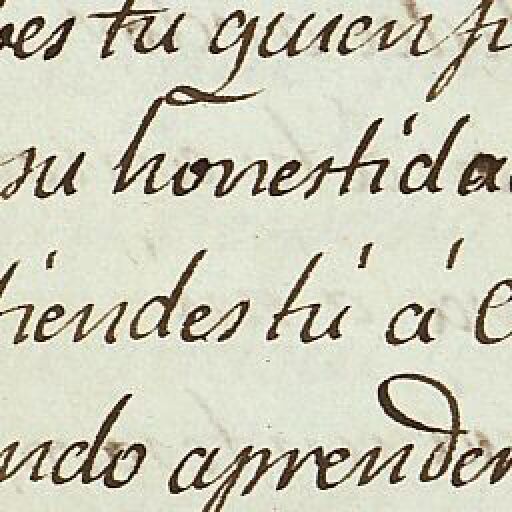 bes tu quien fu
su honestidad
tiendes tú á
ndo aprender